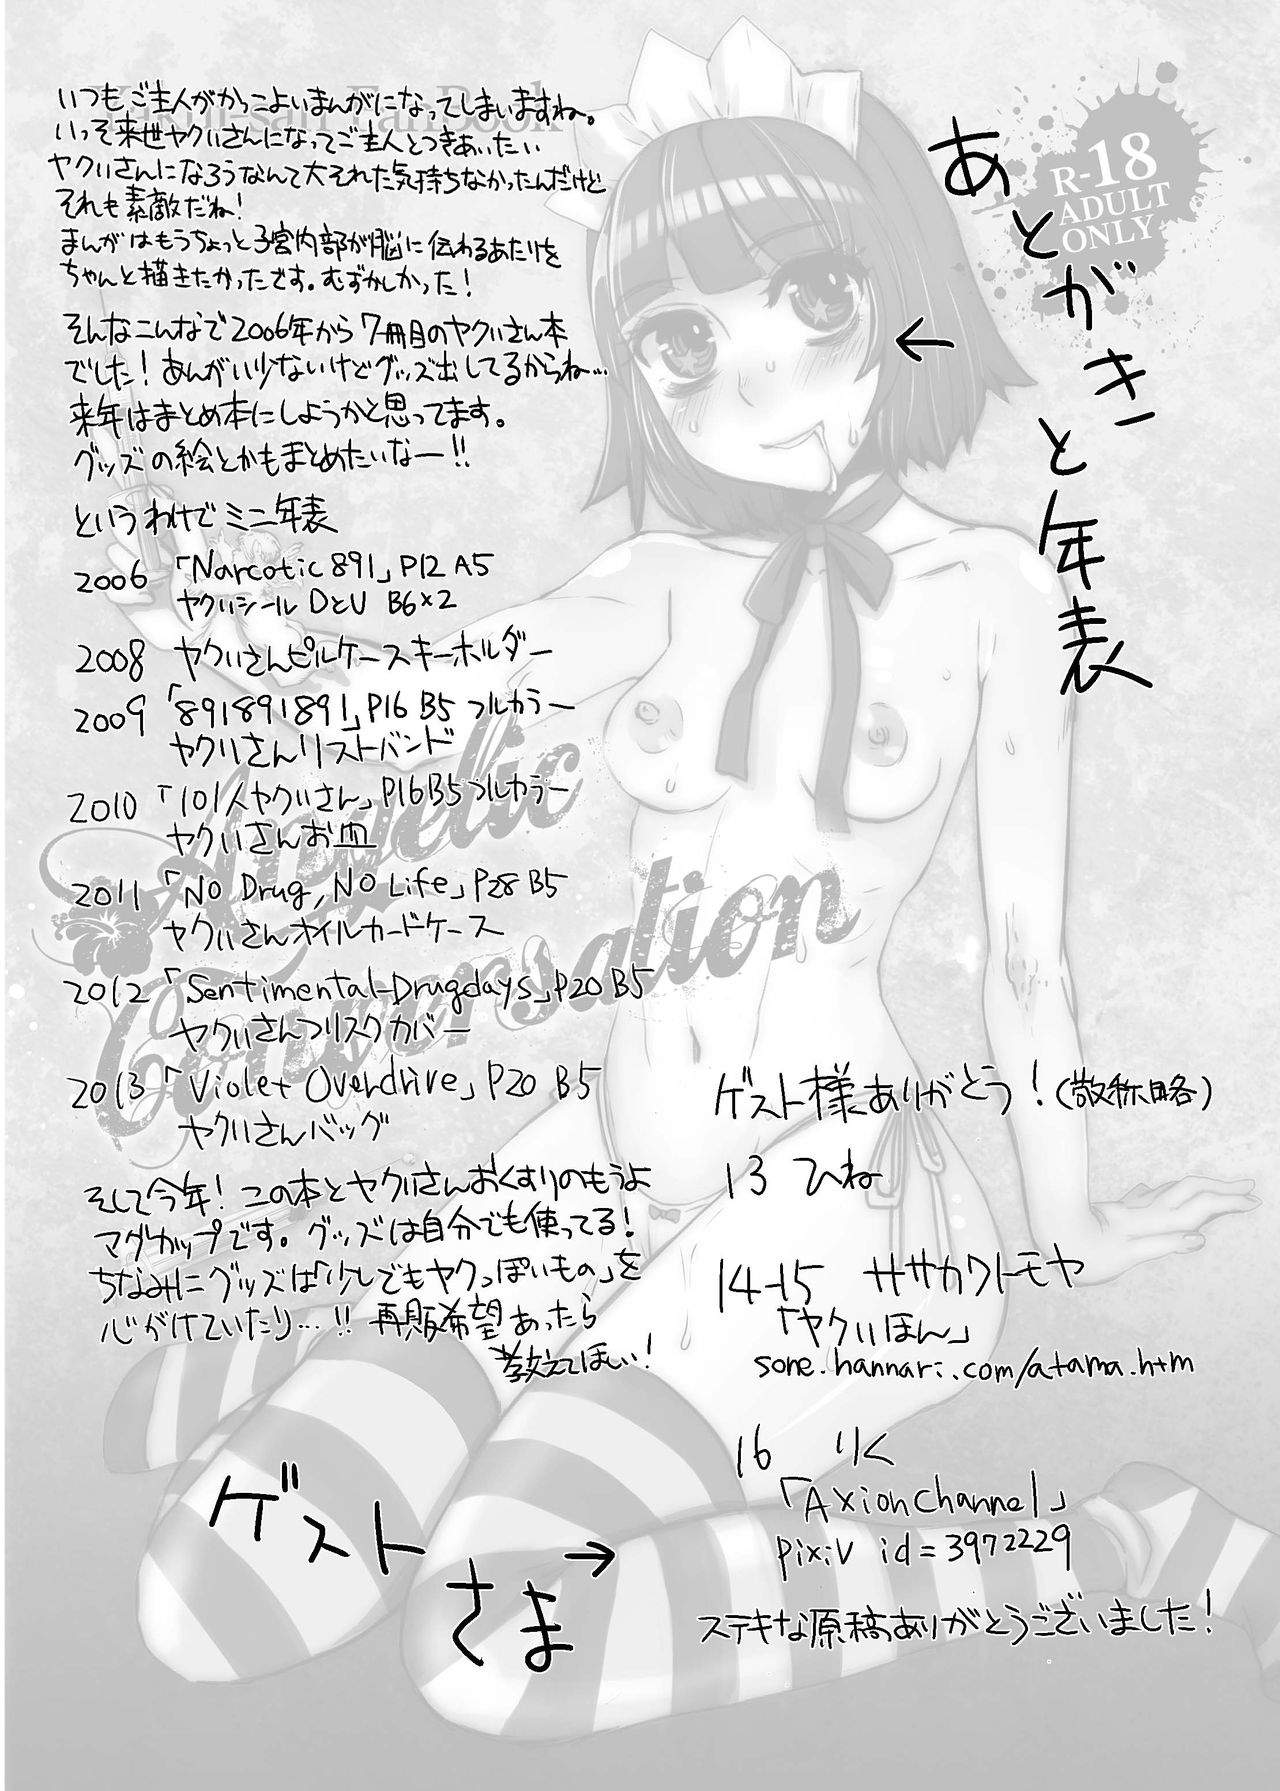 あとがきと年表
R-18
ADULT
ONLY
いつもご主人がかっこよいまんがになってしまいますね。
いっそ来世ヤクいさんになってご主人とつきあいたい
ヤクいさんになろうなんて大それた気持ちなかったんだけど
それも素敵だね！
まんがはもうちょっと子宮内部が脳に伝わるあたりを
ちゃんと描きたかったです。むずかしかった！
そんなこんなで2006年から7冊目のヤクいさん本
でした！あんがい少ないけどグッズ出してるからね…
来年はまとめ本にしようかと思ってます。
グッズの絵とかもまとめたいなー!!
というわけでミニ年表
2006 「Narcotic 891」P12 A5
ヤクいシール DとU B6×2
2008 ヤクいさんピルケースキーホルダー
2009 「891891891」P16 B5 フルカラー
ヤクいさんリストバンド
2010 「101人ヤクいさん」P16 B5 フルカラー
ヤクいさんお皿
2011 「No Drug, No Life」P28 B5
ヤクいさんオイルカードケース
2012 「Sentimental-Drugdays」P20 B5
ヤクいさんフリスクカバー
2013 「Violet Overdrive」P20 B5
ヤクいさんバッグ
そして今年！この本とヤクいさんおくすりのもうよ
マグカップです。グッズは自分でも使ってる！
ちなみにグッズは「少しでもヤクっぽいもの」を
心がけていたり…!! 再販希望あったら
教えてほしい！
Angelic
Conversation
ゲストさま
→
ゲスト様ありがとう！(敬称略)
13 ひね
14-15 ササカワトモヤ
「ヤクいほん」
sone.hannari.com/atama.htm
16 りく
「AxionChannel」
pixiv id=3972229
ステキな原稿ありがとうございました！